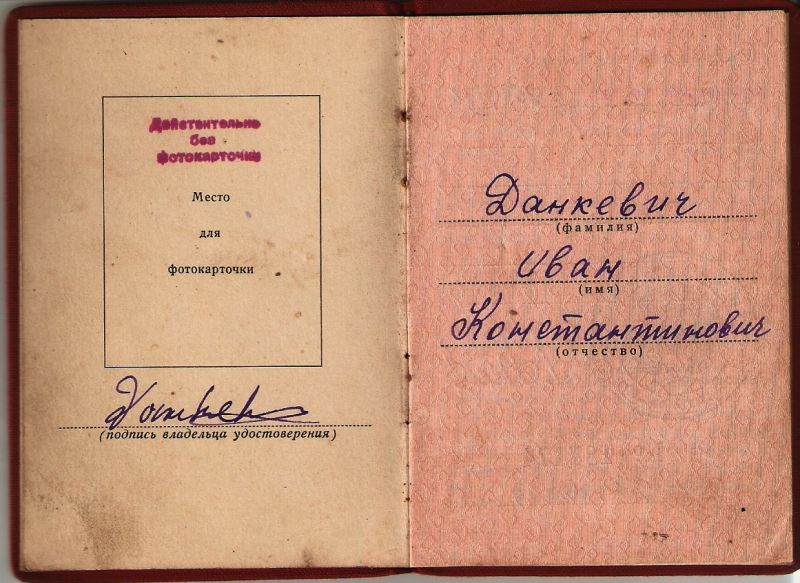 Действительно
без
фотокарточки
Место
для
фотокарточки
(подпись владельца удостоверения)
Данкевич
(фамилия)
Иван
(имя)
Константинович
(отчество)